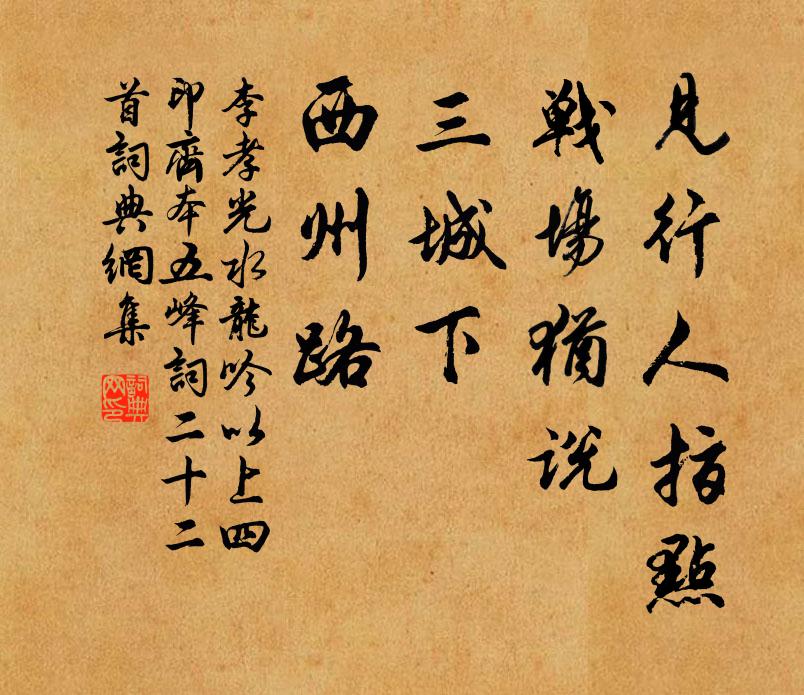 見行人指點
戰場猶説
三城下
西州路
李孝光水龍吟以上四
印齋本五峰詞二十二
首詞典網集
詞典網印